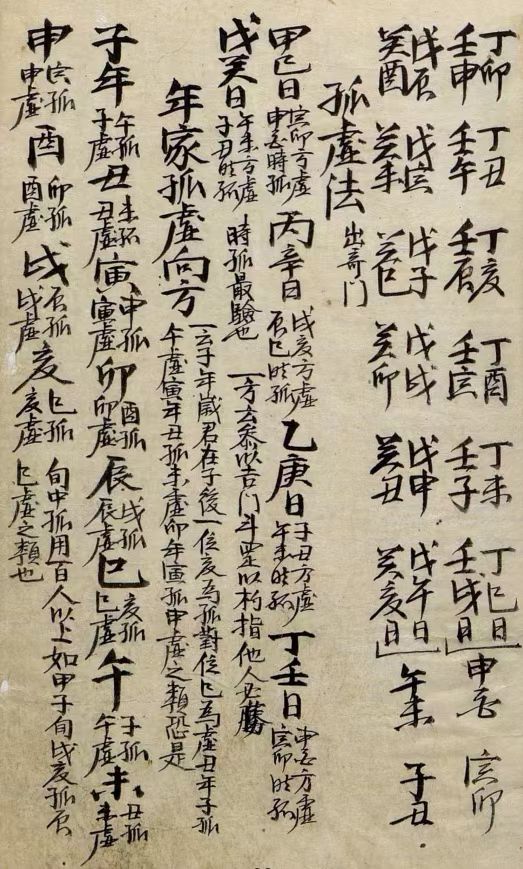 丁卯 丁丑 丁亥 丁酉 丁未 丁巳日
壬申 壬午 壬辰 壬寅 壬子 壬戌日 申酉 寅卯
戊辰 戊寅 戊子 戊戌 戊申 戊午日
癸酉 癸未 癸巳 癸卯 癸丑 癸亥日 午未 子丑
孤虛法 出奇门
甲巳日 寅卯方虛 申酉時孤 丙辛日 戌亥方虛 辰巳时孤 乙庚日 子丑方虛 午未时孤 丁壬日 申酉方虛 寅卯时孤
戊癸日 午未方虛 子丑时孤 時孤最驗也 一方云恭以吉门斗罡以杓指他人必勝
年家孤虛向方 一云子年歲君在子後一位亥為孤對位巳為虛丑年子孤
午虛寅年丑孤未虛卯年寅孤申虛之類恐是
子年 午孤 子虛 丑 未孤 丑虛 寅 申孤 寅虛 卯 酉孤 卯虛 辰 戌孤 辰虛 巳 亥孤 巳虛 午 子孤 午虛 未 丑孤 未虛
申 寅孤 申虛 酉 卯孤 酉虛 戌 辰孤 戌虛 亥 巳孤 亥虛 旬中孤用百人以上如甲子旬戌亥孤辰
巳虛之類也